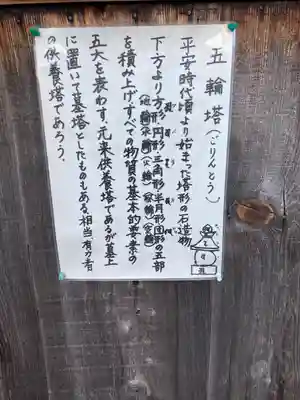 五輪塔(ごりんとう)
平安時代頃より始まった塔形の石造物
下方より方形・円形・三角形・半月形・団形の五部
(地輪)(水輪)(火輪)(風輪)(空輪)
を積み上げ、すべての物質の基本的要素の
五大を表わす。元来供養塔であるが墓上
に置いて墓塔としたものもある。相当有力者
の供養塔であろう。